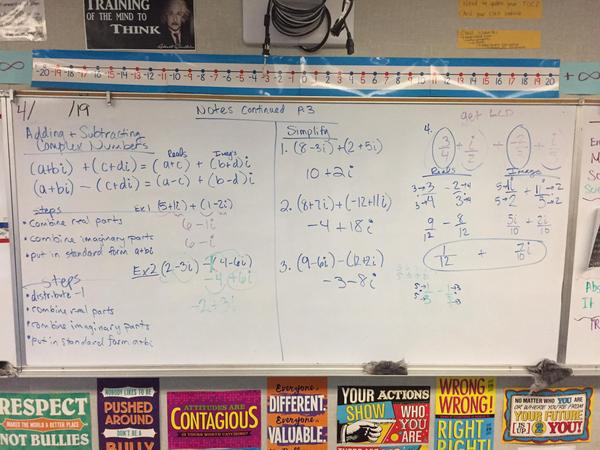 TRAINING
OF THE MIND TO
THINK
-20 -19 -18 -17 -16 -15 -14 -13 -12 -11 -10 -9 -8 -7 -6 -5 -4 -3 -2 -1 0 1 2 3 4 5 6 7 8 9 10 11 12 13 14 15 16 17 18 19 20
+∞
4/ /19
Notes Continued P.3
Adding + Subtracting
Complex Numbers
Reals Imag's
(a+bi) + (c+di) = (a+c) + (b+d)i
(a+bi) - (c+di) = (a-c) + (b-d)i
steps
• combine real parts
• combine imaginary parts
• put in standard form a+bi
Ex1 (5+1i) + (1-2i)
6 - 1i
6 - i
Ex2 (2-3i) - (4-6i)
-4+6i
-2+3i
Steps
• distribute -1
• combine real parts
• combine imaginary parts
• put in standard form a+bi
Simplify
1. (8-3i) + (2+5i)
10 + 2i
2. (8+7i) + (-12+11i)
-4 + 18i
3. (9-6i) - (12+2i)
-3 - 8i
get LCD
4.
Reals Imag's
9/12 - 8/12
5i/10 + 2i/10
1/12 + 7i/10
RESPECT
MAKES THE WORLD A BETTER PLACE
NOT BULLIES
NOBODY LIKES TO BE
PUSHED
AROUND
DON'T BE A
BULLY
ATTITUDES ARE
CONTAGIOUS
IS YOURS WORTH CATCHING?
Everyone is
DIFFERENT.
Everyone is
VALUABLE.
YOUR ACTIONS
SHOW WHO
YOU ARE
WRONG IS
WRONG!
RIGHT
RIGHT
NO MATTER WHO YOU ARE
OR WHERE YOU'RE FROM
YOUR FUTURE
IS UP TO YOU!